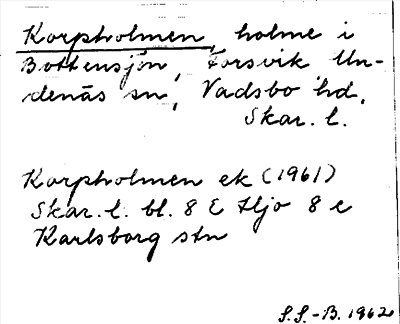 Korpholmen, holme i
Bottensjön, Forsvik Un-
denäs sn, Vadsbo hd,
Skar. l.
Korpholmen ek (1961)
Skar. l. bl. 8 E Hjo 8 e
Karlsborg stn
S.S.-B. 1962